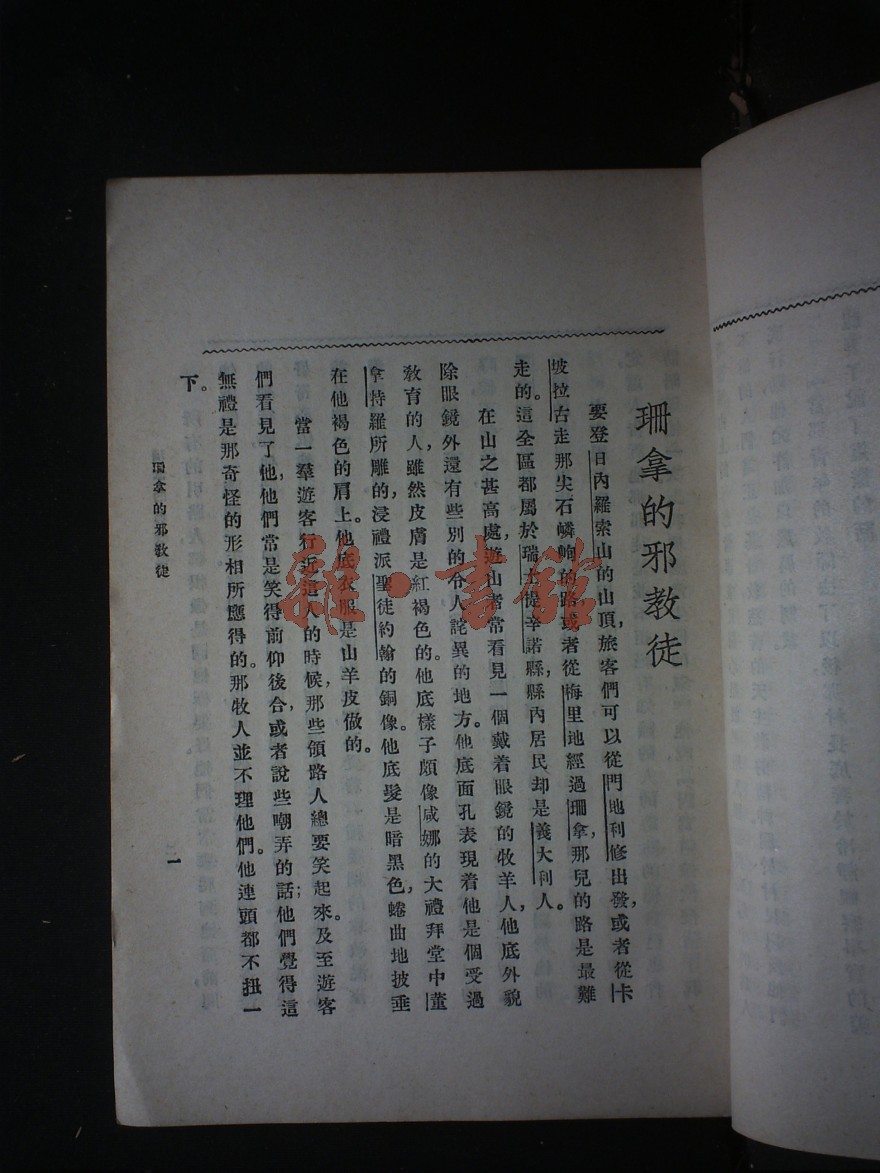 珊拿的邪教徒
要登日內羅索山的山頂,旅客們可以從門地利修出發,或者從卡
坡拉古走那尖石嶙峋的路,或者從梅里地經過珊拿,那兒的路是最難
走的。這全區都屬於瑞士提辛諾縣,縣內居民却是義大利人。
在山之甚高處,遊山者常看見一個戴着眼鏡的牧羊人,他底外貌
除眼鏡外還有些別的令人詫異的地方。他底面孔表現着他是個受過
敎育的人,雖然皮膚是紅褐色的。他底樣子頗像咸娜的大禮拜堂中董
拿持羅所雕的,浸禮派聖徒約翰的銅像。他底髮是暗黑色,蜷曲地披垂
在他褐色的肩上。他底衣服是山羊皮做的。
當一羣遊客行近這人的時候,那些領路人總要笑起來。及至遊客
們看見了他,他們常是笑得前仰後合,或者說些嘲弄的話;他們覺得這
無禮是那奇怪的形相所應得的。那牧人並不理他們。他連頭都不扭一
下。
珊拿的邪敎徒
一
雜·書館